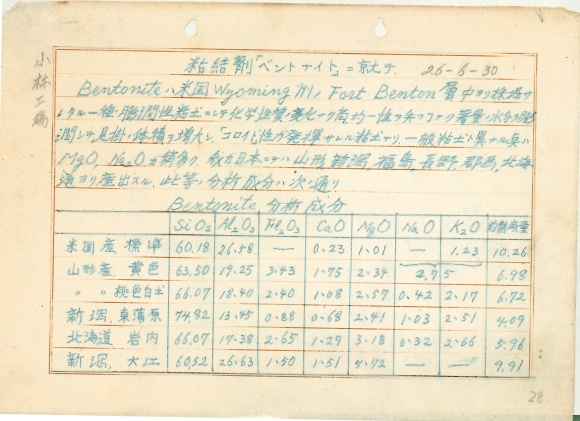 小林工場
粘結剤「ベントナイト」ニ就テ. 26-6-30
Bentoniteハ米国Wyoming州ノFort Benton層中ヨリ採掘サ
ルヽ一種ノ膨潤性粘土ニシテ化学性質ハ 均一性ヲ 多量ノ水ヲ 膨
潤シテ見掛ノ体積ヲ増大シ、「コロイド」性ガ発揮サレル粘土ナリ. 一般粘土ト異ナル点ハ
MgO, Na₂Oガ稍多ク, 我ガ日本ニテハ山形, 新潟, 福島, 長野, 群馬, 北海
道ヨリ産出スル. 此等ノ分析成分ハ次ノ通リ
Bentonite 分析成分
SiO₂ Al₂O₃ Fe₂O₃ CaO MgO NaO K₂O 灼熱減量
米国産 標準 60.18 26.58 — 0.23 1.01 — 1.23 10.26
山形産 黄色 63.50 19.25 3.43 1.75 2.34 2.75 6.98
〃 〃 桃色白土 66.07 18.40 2.40 1.08 2.57 0.42 2.17 6.72
新潟, 東蒲原 74.82 13.45 0.88 0.68 2.41 1.03 2.51 4.09
北海道 岩内 66.07 17.38 2.65 1.29 3.18 0.32 2.66 5.96
新潟, 大江 60.52 26.63 1.50 1.51 5.72 — — 9.91
28